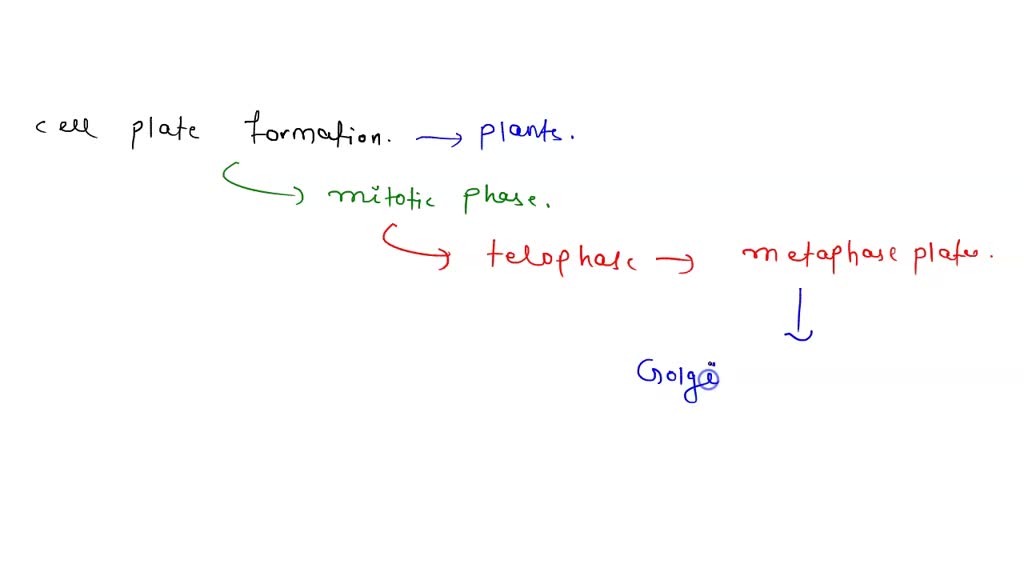 cell plate formation. → plants.
mitotic phase.
telophase → metaphase plate.
Golgi